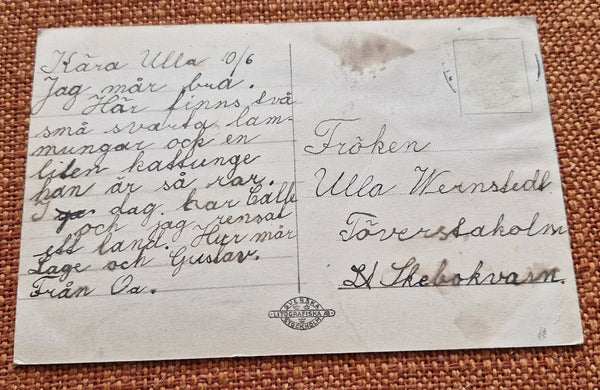 Kära Ulla 10/6
Jag mår bra.
Här finns två
små svarta lam-
mungar och en
liten kattunge
han är så rar.
I dag har Calle
och jag rensat
ett land. Hur mår
Lage och Gustav.
Från Oa.
Fröken
Ulla Wernstedt
Töverstaholm
Skebokvarn.
SVENSKA
LITOGRAFISKA AB
STOCKHOLM